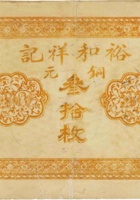 裕和祥記
銅元
叁拾枚